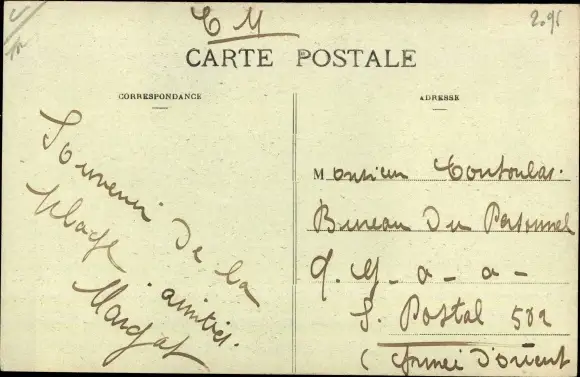 T M
2.95
CARTE POSTALE
CORRESPONDANCE
Souvenir de la
plage amitiés.
Margat
ADRESSE
Monsieur Toutoulas.
Bureau Du Personnel
Q. G - a - a -
S. Postal 502
(Armée d'orient